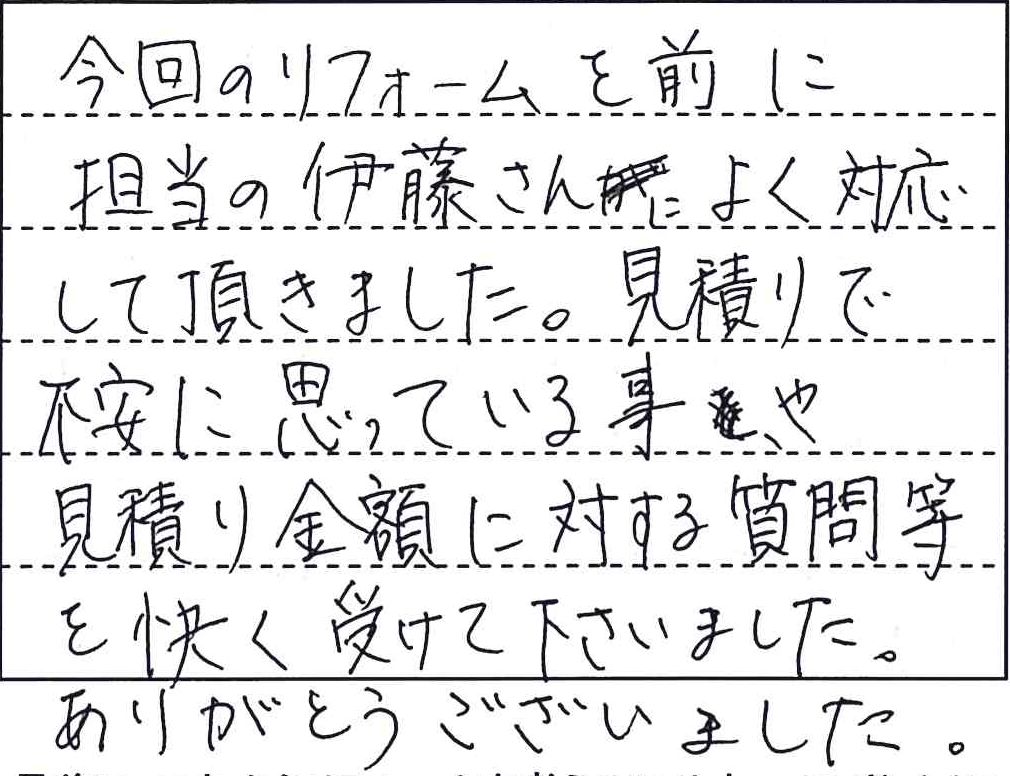 今回のリフォームを前に
担当の伊藤さんによく対応
して頂きました。見積りで
不安に思っている事、や
見積り金額に対する質問等
を快く受けて下さいました。
ありがとうございました。